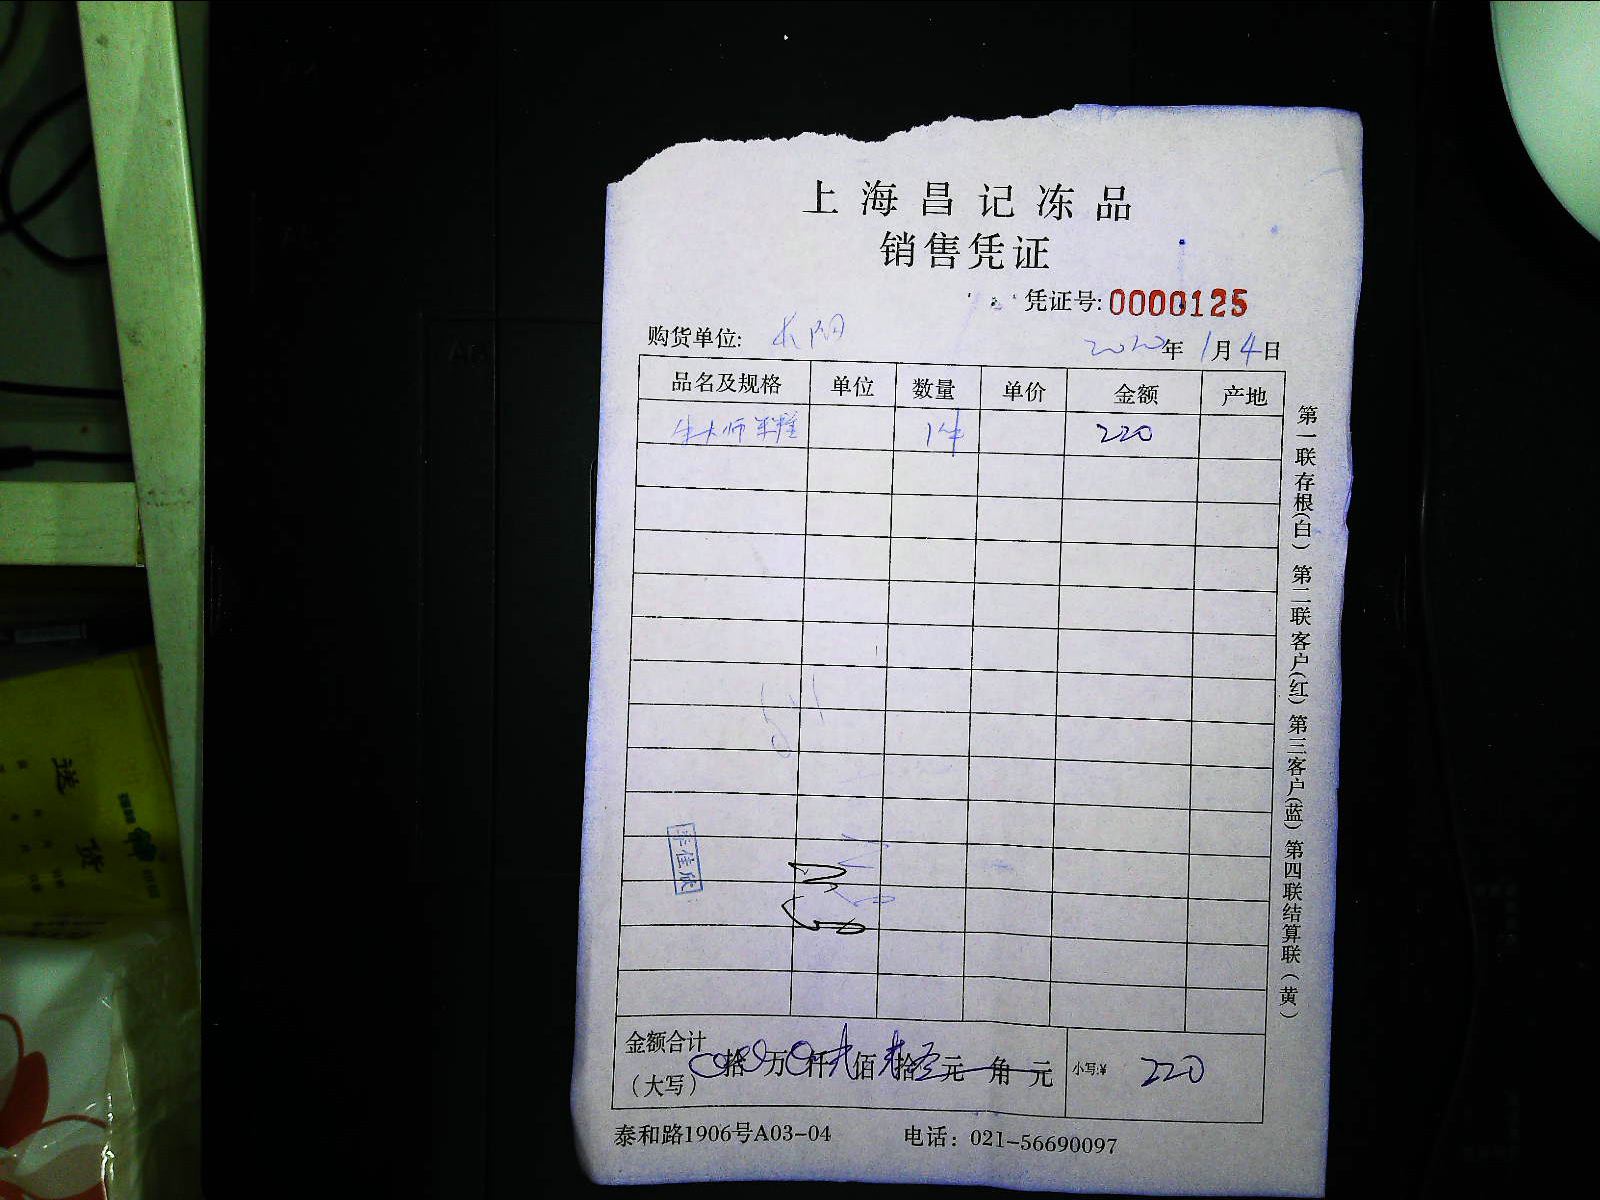 上海昌记冻品
销售凭证
凭证号:0000125
购货单位: 长阳 2020年1月4日
品名及规格 单位 数量 单价 金额 产地
牛大师 1件 220
金额合计
(大写) 拾 万 仟 贰佰 贰拾 元 角 元 小写:¥ 220
泰和路1906号A03-04 电话: 021-56690097
第一联存根(白) 第二联客户(红) 第三客户(蓝) 第四联结算联(黄)
佳欣
送
货